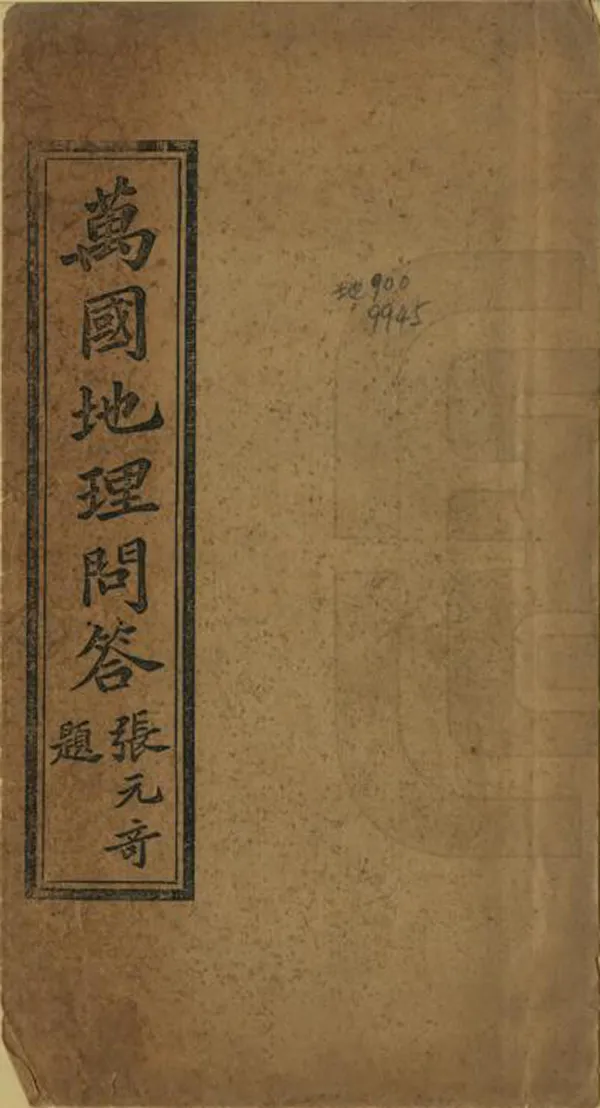 萬國地理問答
張元奇
題
地900
9945